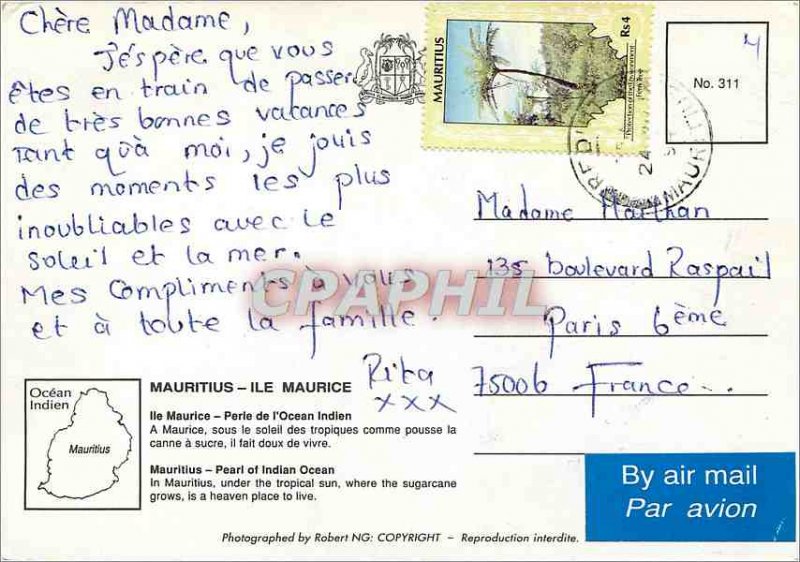 Chère Madame,
J'éspère que vous
êtes en train de passer
de très bonnes vacances
Tant qu'à moi, je jouis
des moments les plus
inoubliables avec le
soleil et la mer.
Mes Compliments à vous
et à toute la famille.
Rita
xxx
MAURITIUS
Rs4
Protection of the Environment
Fern Tree
No. 311
4
24
MAURIT
Madame Marthan
135 boulevard Raspail
Paris 6ème
75006 France.
CPAPHIL
Océan
Indien
Mauritius
MAURITIUS – ILE MAURICE
Ile Maurice – Perle de l'Ocean Indien
A Maurice, sous le soleil des tropiques comme pousse la
canne à sucre, il fait doux de vivre.
Mauritius – Pearl of Indian Ocean
In Mauritius, under the tropical sun, where the sugarcane
grows, is a heaven place to live.
By air mail
Par avion
Photographed by Robert NG: COPYRIGHT – Reproduction interdite.